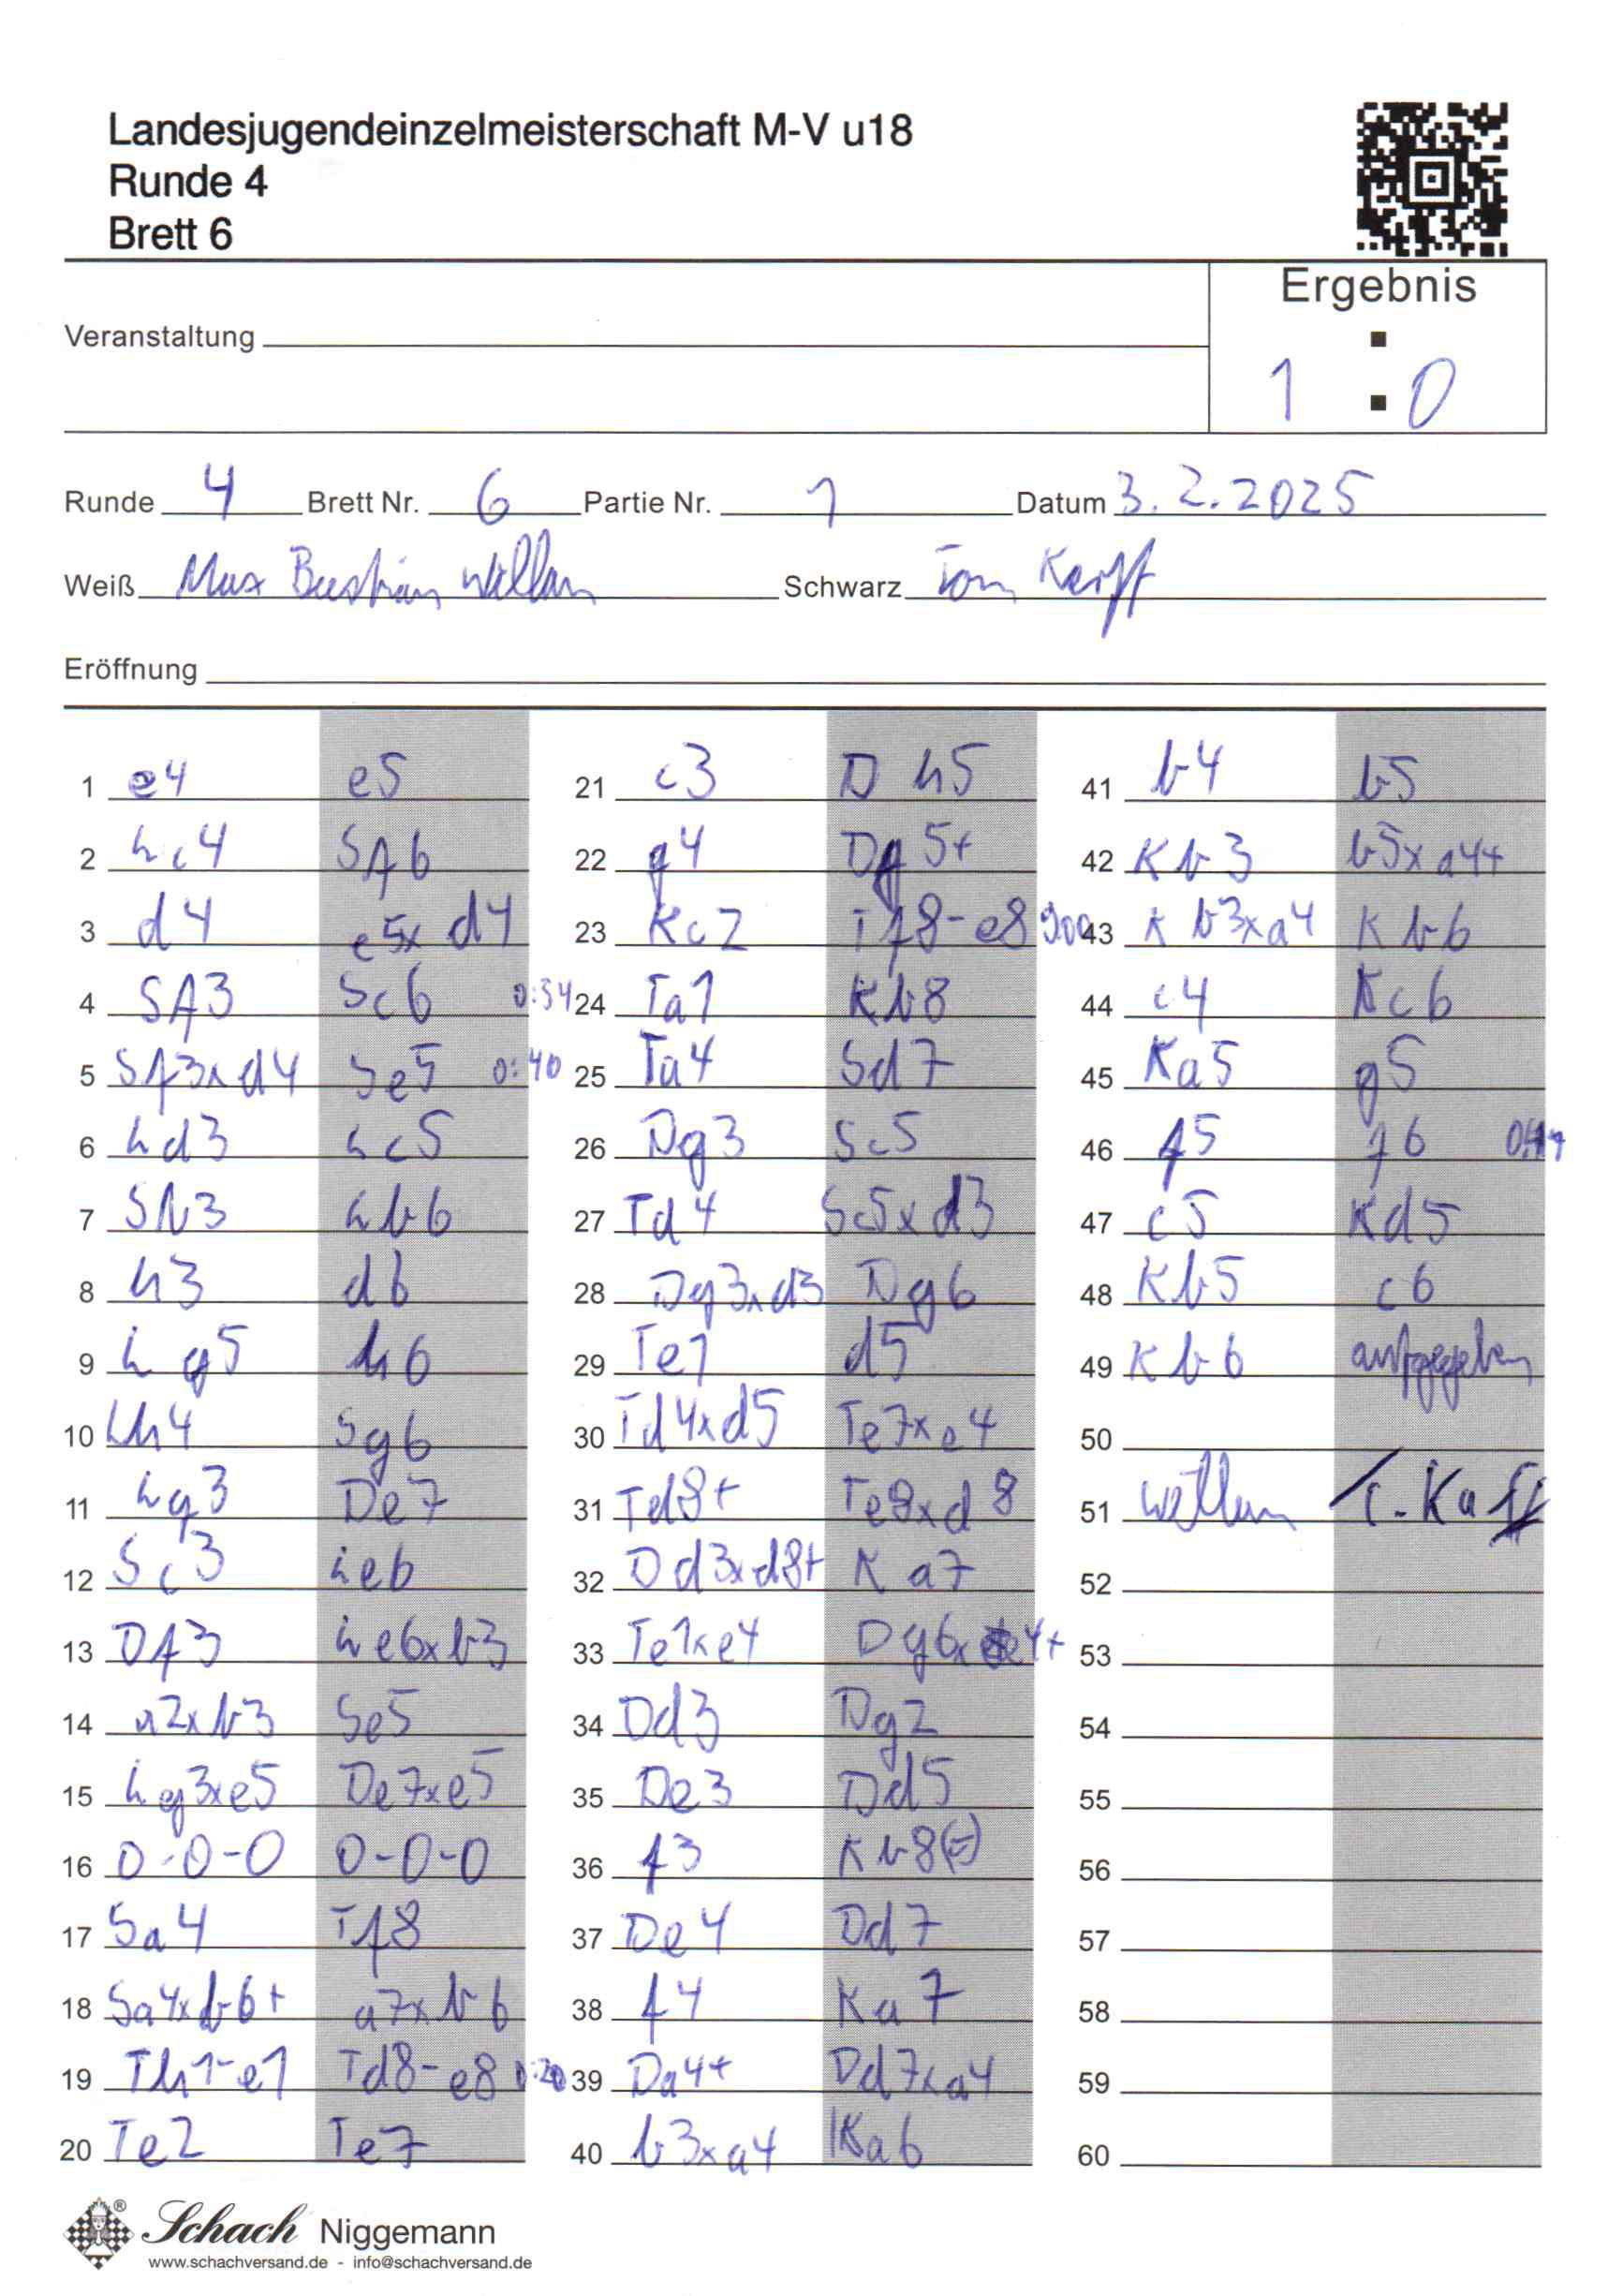 Landesjugendeinzelmeisterschaft M-V u18
Runde 4
Brett 6
Ergebnis
Veranstaltung
1 : 0
Runde 4 Brett Nr. 6 Partie Nr. 1 Datum 3.2.2025
Weiß Max Bastian Willam Schwarz Tom Karff
Eröffnung
1 e4 e5
2 Lc4 Sf6
3 d4 e5xd4
4 Sf3 Sc6 0:34
5 Sf3xd4 Se5 0:40
6 Ld3 Lc5
7 Sb3 Lb6
8 h3 d6
9 Lg5 h6
10 Lh4 Sg6
11 Lg3 De7
12 Sc3 Le6
13 Df3 Le6xb3
14 a2xb3 Se5
15 Lg3xe5 De7xe5
16 0-0-0 0-0-0
17 Sa4 Tf8
18 Sa4xb6+ a7xb6
19 Th1-e1 Td8-e8
20 Te2 Te7
21 c3 Dh5
22 g4 Dg5+
23 Kc2 Tf8-e8
24 Ta1 Kb8
25 Ta4 Sd7
26 Dg3 Sc5
27 Td4 Sc5xd3
28 Dg3xd3 Dg6
29 Te1 d5
30 Td4xd5 Te7xe4
31 Td8+ Te8xd8
32 Dd3xd8+ Ka7
33 Te1xe4 Dg6xe4+
34 Dd3 Dg2
35 De3 Dd5
36 f3 Kb8(=)
37 De4 Dd7
38 f4 Ka7
39 Da4+ Dd7xa4
40 b3xa4 Ka6
41 b4 b5
42 Kb3 b5xa4+
43 Kb3xa4 Kb6
44 c4 Kc6
45 Ka5 g5
46 f5 f6
47 c5 Kd5
48 Kb5 c6
49 Kb6 aufgegeben
50
51
52
53
54
55
56
57
58
59
60
Schach Niggemann
www.schachversand.de - info@schachversand.de